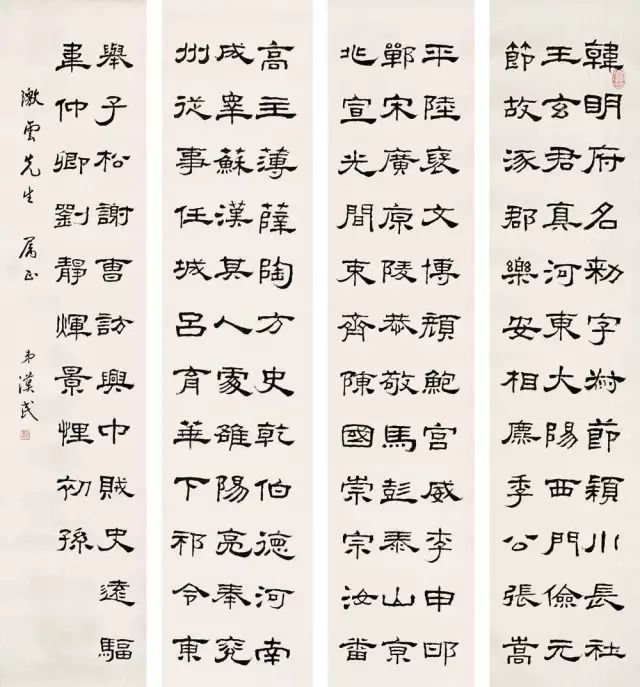 韓明府名勑字叔節穎川長社
王玄君真河東大陽西門儉元
節故涿郡樂安相廉季公張嵩
平陸裒文博頹鮑宮威李申
鄲宋廣原陵恭敬馬彭泰山京
北宣光間束齊陳國崇宗汝番
高主薄薛陶方史乾伯德河南
成睾蘇漢其人處雒陽亮奉兗
州従事任城呂育華下祁令東
舉子松謝曹訪興中賊史遠驅
韋仲卿劉靜煇景悝初孫
澂雲先生 属正 弟漢民